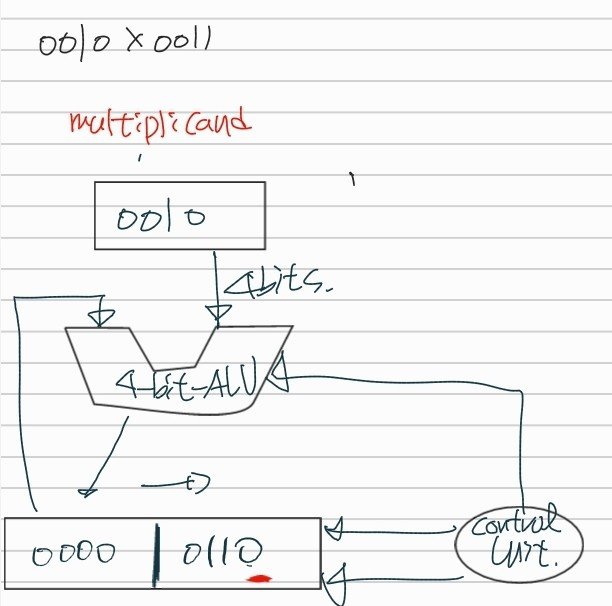 0010 × 0011
multiplicand
0010
4bits.
4-bit-ALU
0000 | 0110
control
Unit.